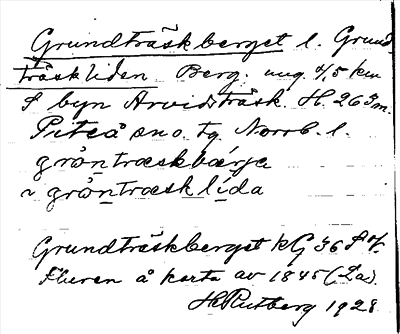 Grundträskberget l. Grund
träskliden. Berg. ung. 4,5 km
S byn Arvidsträsk. H. 263 m.
Piteå sn o. tg. Norrb. l.
gròntræskbærja
~ gròntræsklída
Grundträskberget kG 36 SV.
Fluren å karta av 1845 (La).
H. Rutberg 1928